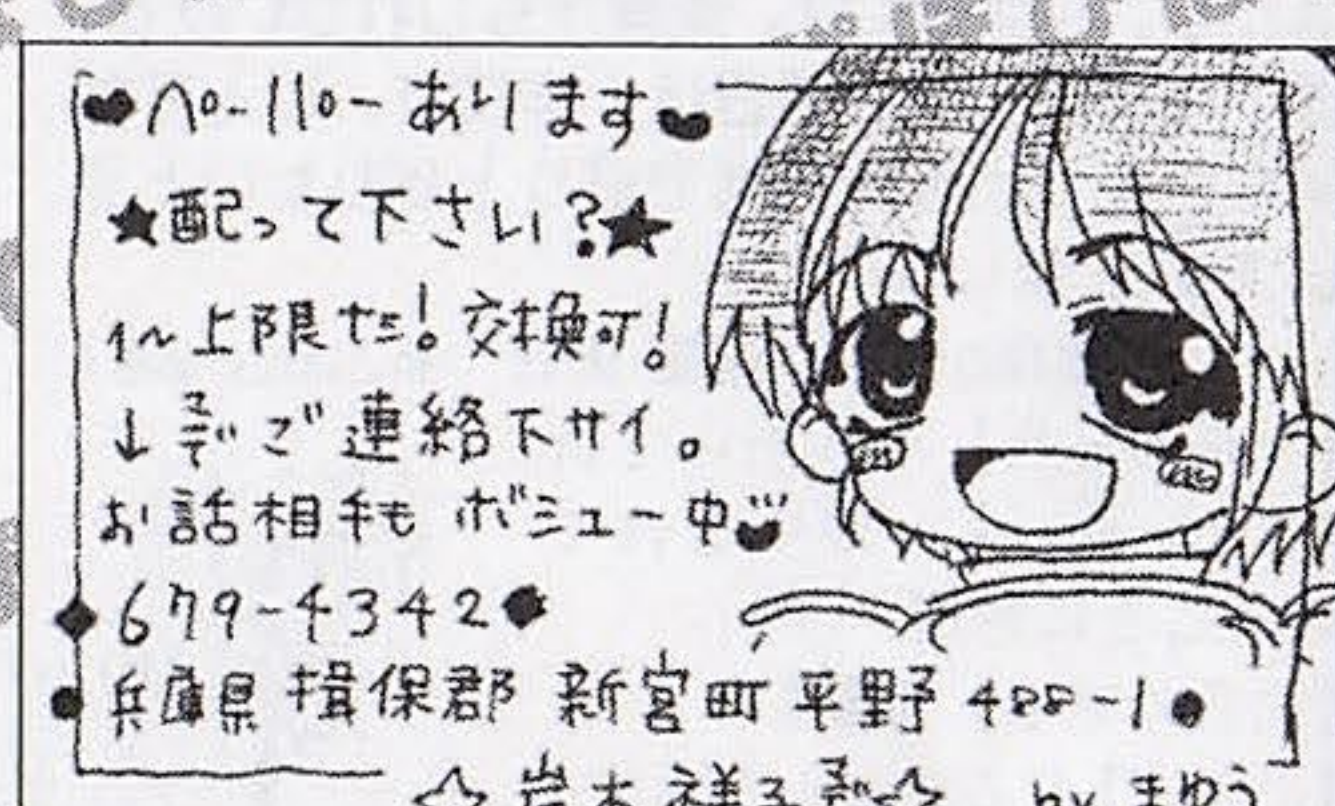 ♥ペーパーあります♥
★配って下さい?★
1~上限なし!交換可!
↓までご連絡下サイ。
お話相手も ボシュー中
◆679-4342●
●兵庫県 揖保郡 新宮町 平野 488-1●
by まゆう